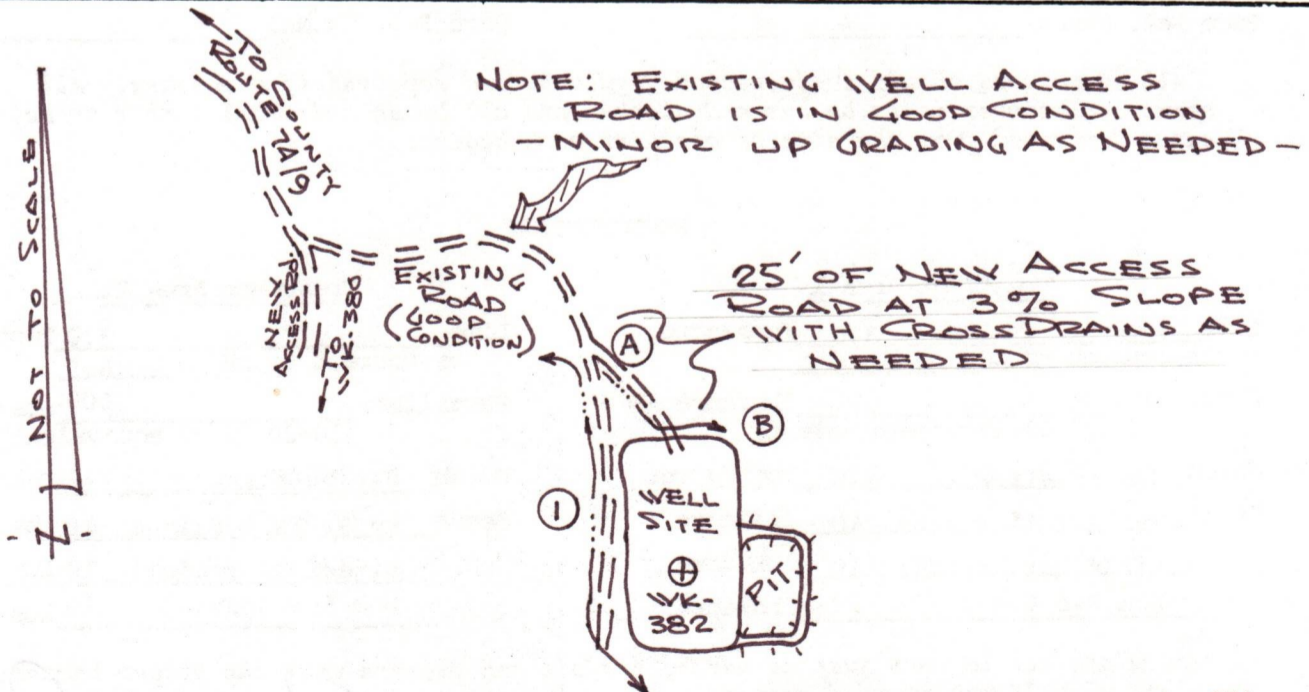 TO COUNTY
ROUTE 74/9
NOTE EXISTING WELL ACCESS
ROAD IS IN GOOD CONDITION
- MINOR UP GRADING AS NEEDED -
NOT TO SCALE
N
NEW
ACCESS RD.
TO
WK-380
EXISTING
ROAD
(GOOD
CONDITION)
25' OF NEW ACCESS
ROAD AT 3% SLOPE
WITH CROSS DRAINS AS
NEEDED
A
B
1
WELL
SITE
WK-
382
PIT